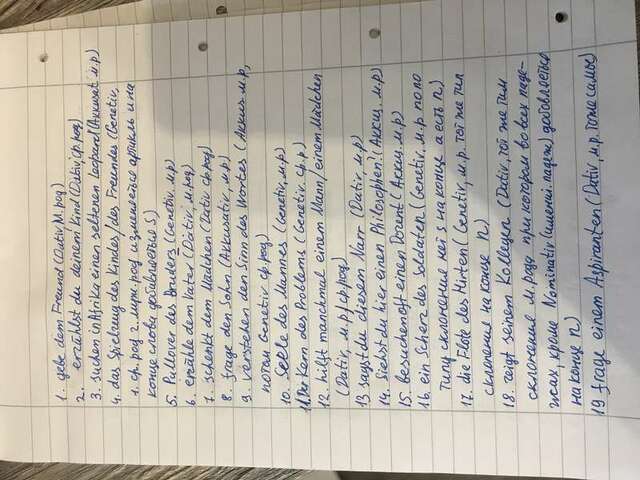 1. gebe dem Freund (Dativ м.род)
2 erzählst du deinem Kind (Dativ, ср.род)
3. suchen in Afrika einen seltenen Leopard (Akkusat. м.р)
4. das Spielzeug des Kindes / des Freundes (Genetiv,
1. ср. род 2. муж. род изменяется артикль и на
конце слова добавляется s)
5. Pullover des Bruders (Genetiv, м.р)
6. erzähle dem Vater (Dativ, м.род)
7. schenkt dem Mädchen (Dativ ср.род)
8. frage den Sohn (Akkusativ, м.р)
9. verstehen den Sinn des Wortes (Akkus м.р,
Genetiv ср.род)
10. Seele des Mannes (Genetiv, м.р)
11. Der Kern des Problems (Genetiv ср.р)
12. hilft manchmal einem Mann / einem Mädchen
(Dativ, м.р | ср.род)
13 sagst du diesem Narr (Dativ. м.р)
14. Siehst du hier einen Philosophen? (Аккуз, м.р)
15. besuchen oft einen Dozent (Аккуз, м.р)
16. ein Scherz des Soldaten (Genetiv. м.р по по
типу склонения ней s на конце а есть n)
17. die Flöte des Hirten (Genetiv, м.р. той же тип
склонения на конце n)
18. zeigt seinem Kollegen (Dativ, той же тип
склонения м.роду при котором во всех паде-
жах, кроме Nominativ (именит. падеж) добавляется
на конце n)
19. frage einem Aspiranten (Dativ, м.р. тоже самое)